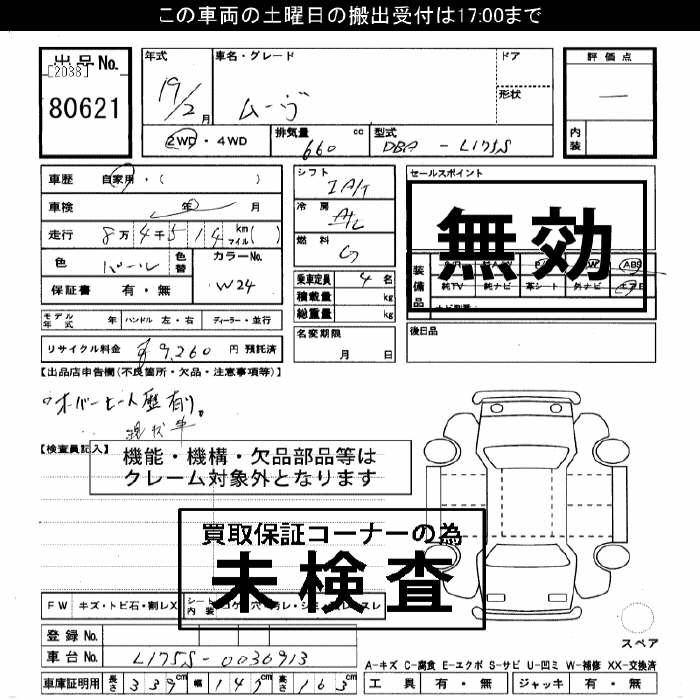 この車両の土曜日の搬出受付は17:00まで
出品No.
[2038]
80621
年式
19/2 月
車名・グレード
ムーヴ
ドア
形状
評価点
内装
2WD・4WD
排気量 660 cc
型式 DBA - L175S
車歴 自家用・( )
車検 年 月
走行 8万4千514 km マイル( )
色 パール 色替
カラーNo. W24
保証書 有・無
シフト IA/T
冷房 A/C
燃料 G
乗車定員 4 名
積載量 kg
総重量 kg
セールスポイント
無効
装備品
ABS
純TV 純ナビ 革シート 外ナビ エアB
モデル年式 年 ハンドル 左・右 ディーラー・並行
名変期限 月 日
後日品
リサイクル料金 ¥9,260 円 預託済
【出品店申告欄(不良箇所・欠品・注意事項等)】
オーバーヒート歴有り。
現状車
【検査員記入】
機能・機構・欠品部品等は
クレーム対象外となります
買取保証コーナーの為
未検査
FW キズ・トビ石・割レX
シート内装
スペア
登録No.
車台No. L175S-0036913
A-キズ C-腐食 E-エクボ S-サビ U-凹ミ W-補修 XX-交換済
車庫証明用 長さ 339cm 幅 147cm 高さ 163cm
工具 有・無 ジャッキ 有・無